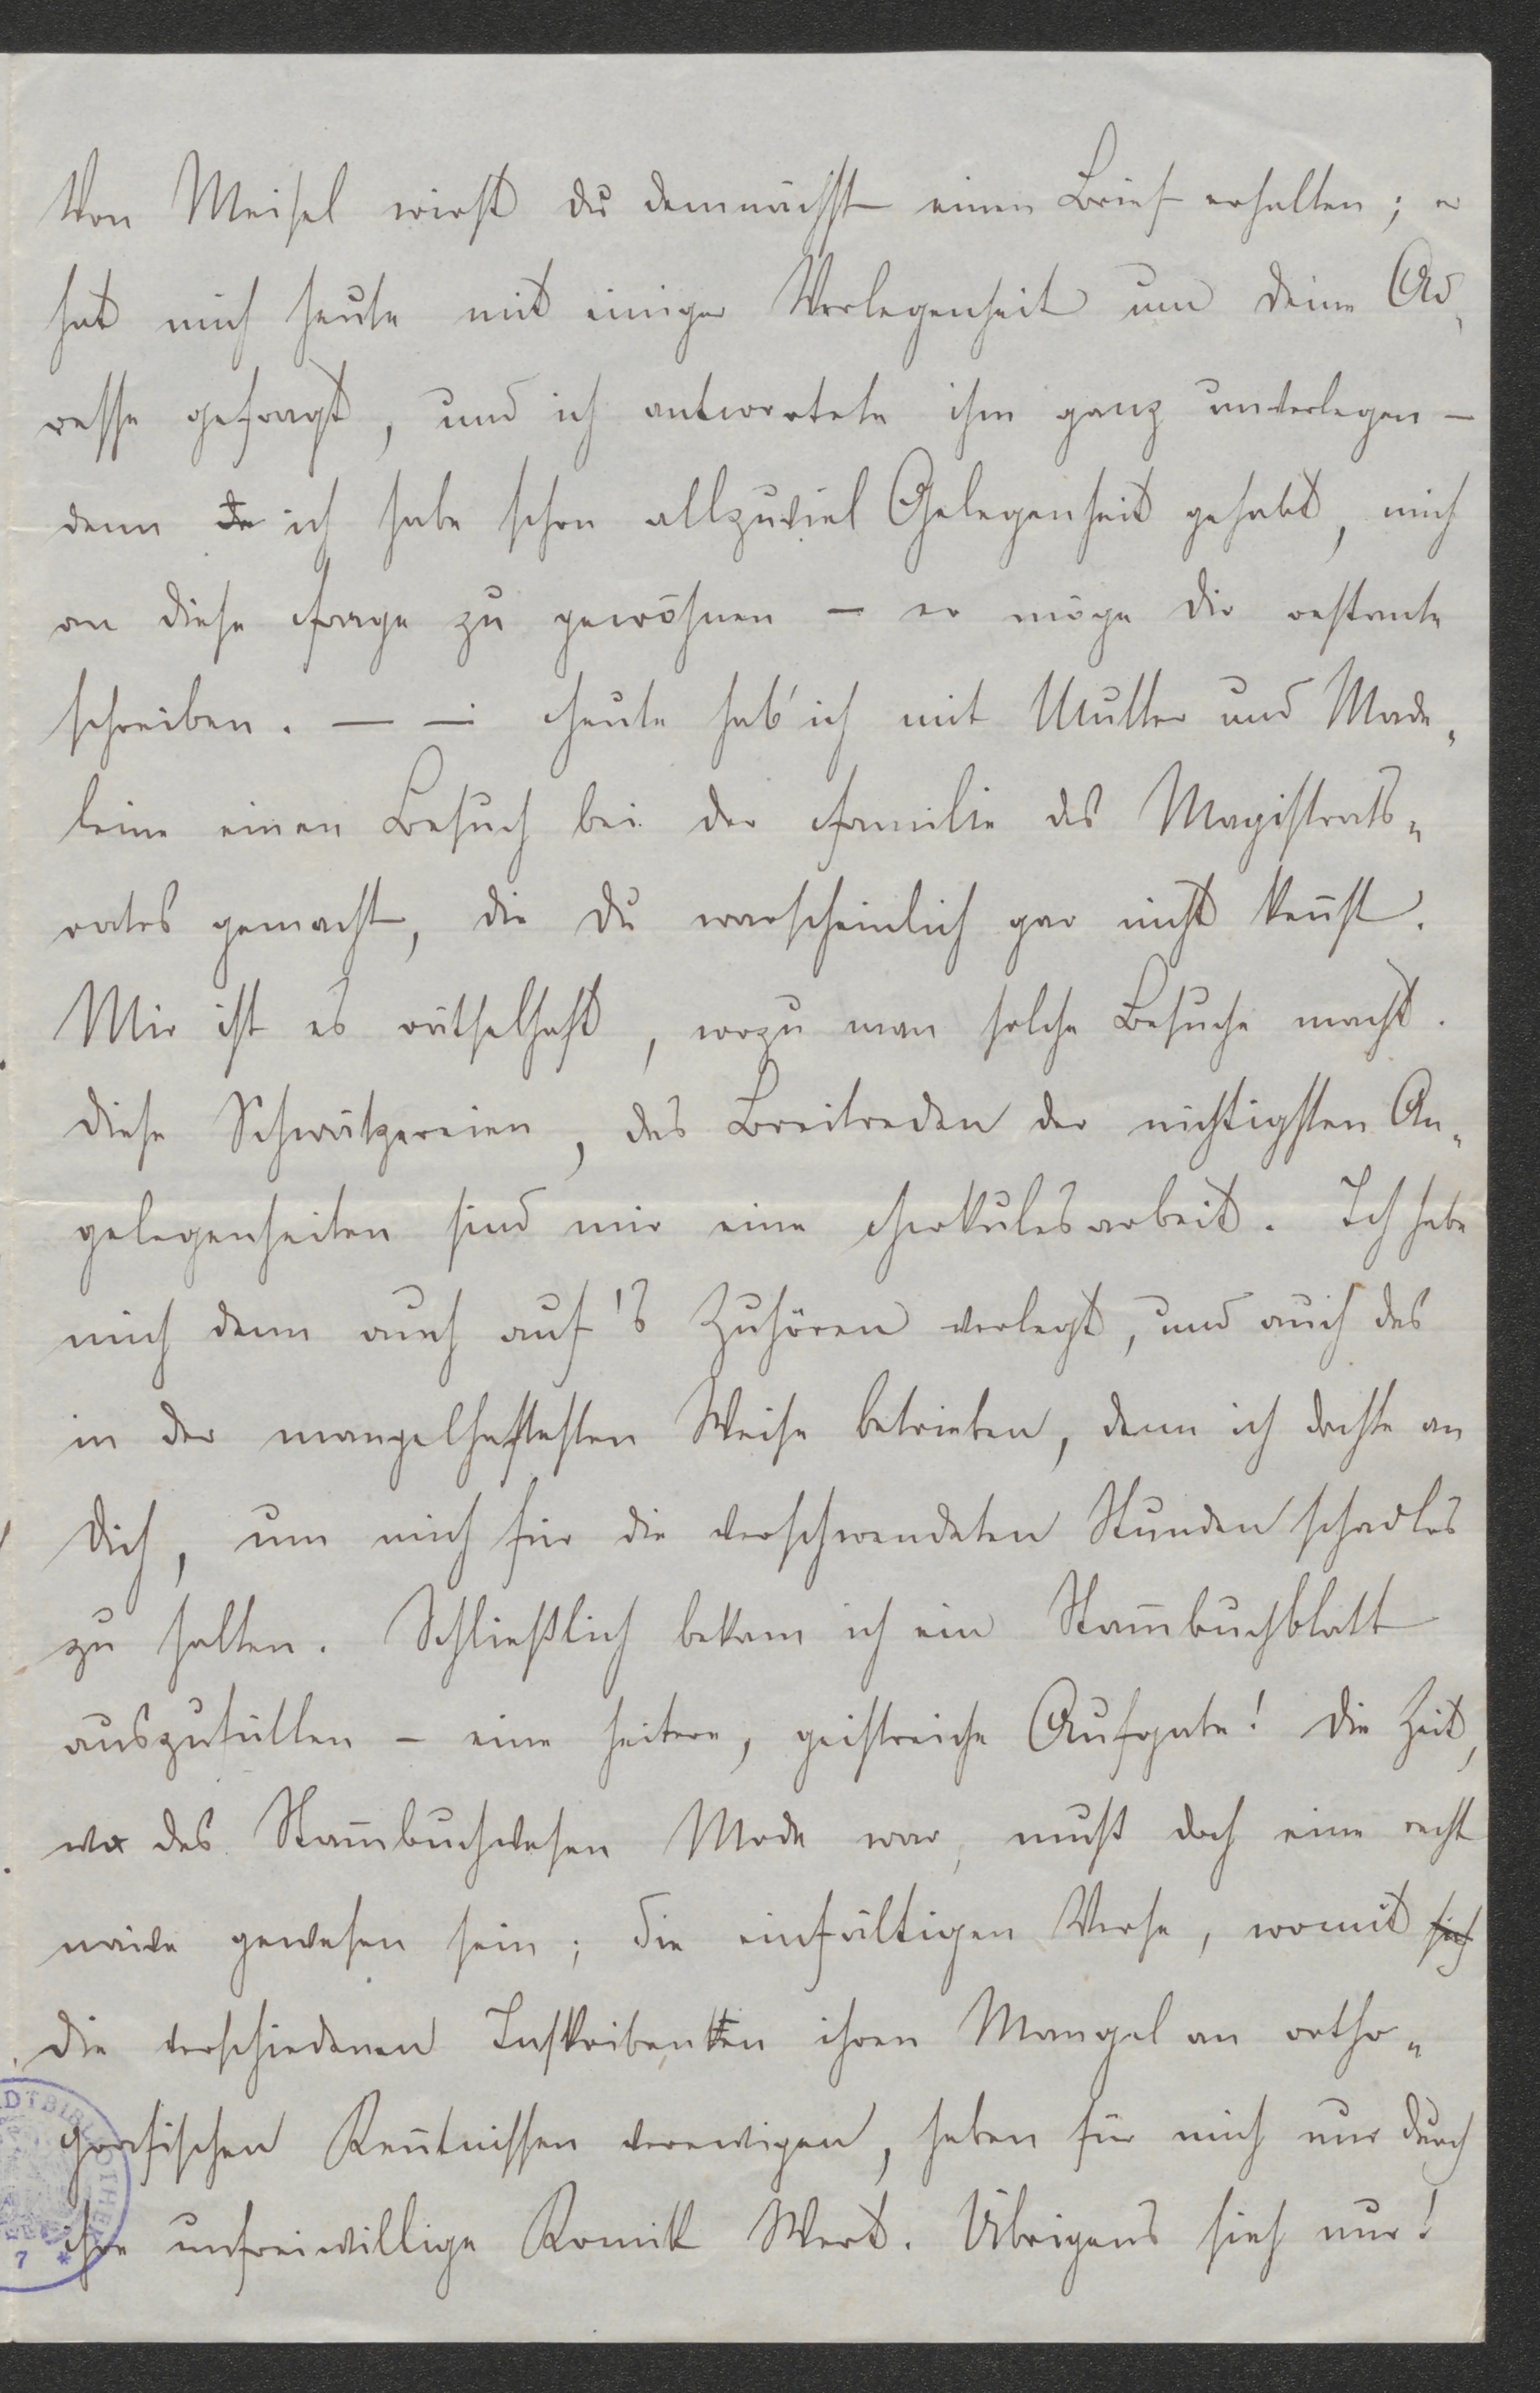 Von Meisel wirst du demnächst einen Brief erhalten; er
hat mich heute mit einiger Verlegenheit um deine Ad„
resse gefragt, und ich antwortete ihm ganz unverlegen –
denn de ich habe schon allzuviel Gelegenheit gehabt, mich
an diese Frage zu gewöhnen – er möge dir restante
schreiben. – – Heute hab' ich mit Mutter und Made„
leine einen Besuch bei der Familie des Magistrats„
rates gemacht, die du warscheinlich gar nicht keñst.
Mir ist es rätselhaft, wozu man solche Besuche macht.
Diese Schwätzereien, das Breitreden der nichtigsten An„
gelegenheiten sind mir eine Herkulesarbeit. Ich habe
mich denn auch auf's Zuhören verlegt, und auch das
in der mangelhaftesten Weise betrieben, denn ich dachte an
dich, um mich für die verschwendeten Stunden schadlos
zu halten. Schließlich bekam ich ein Stam̄buchblatt
auszufüllen – eine heitere, geistreiche Aufgabe! Die Zeit,
wo das Stam̄buchwesen Mode war, muß doch eine recht
naive gewesen sein; die einfältigen Verse, womit sich
die verschiedenen Inskribenten ihren Mangel an ortho„
grafischen Keñtnissen verewigen, haben für mich nur durch
ihre unfreiwillige Komik Wert. Übrigens sieh nur!
7 *